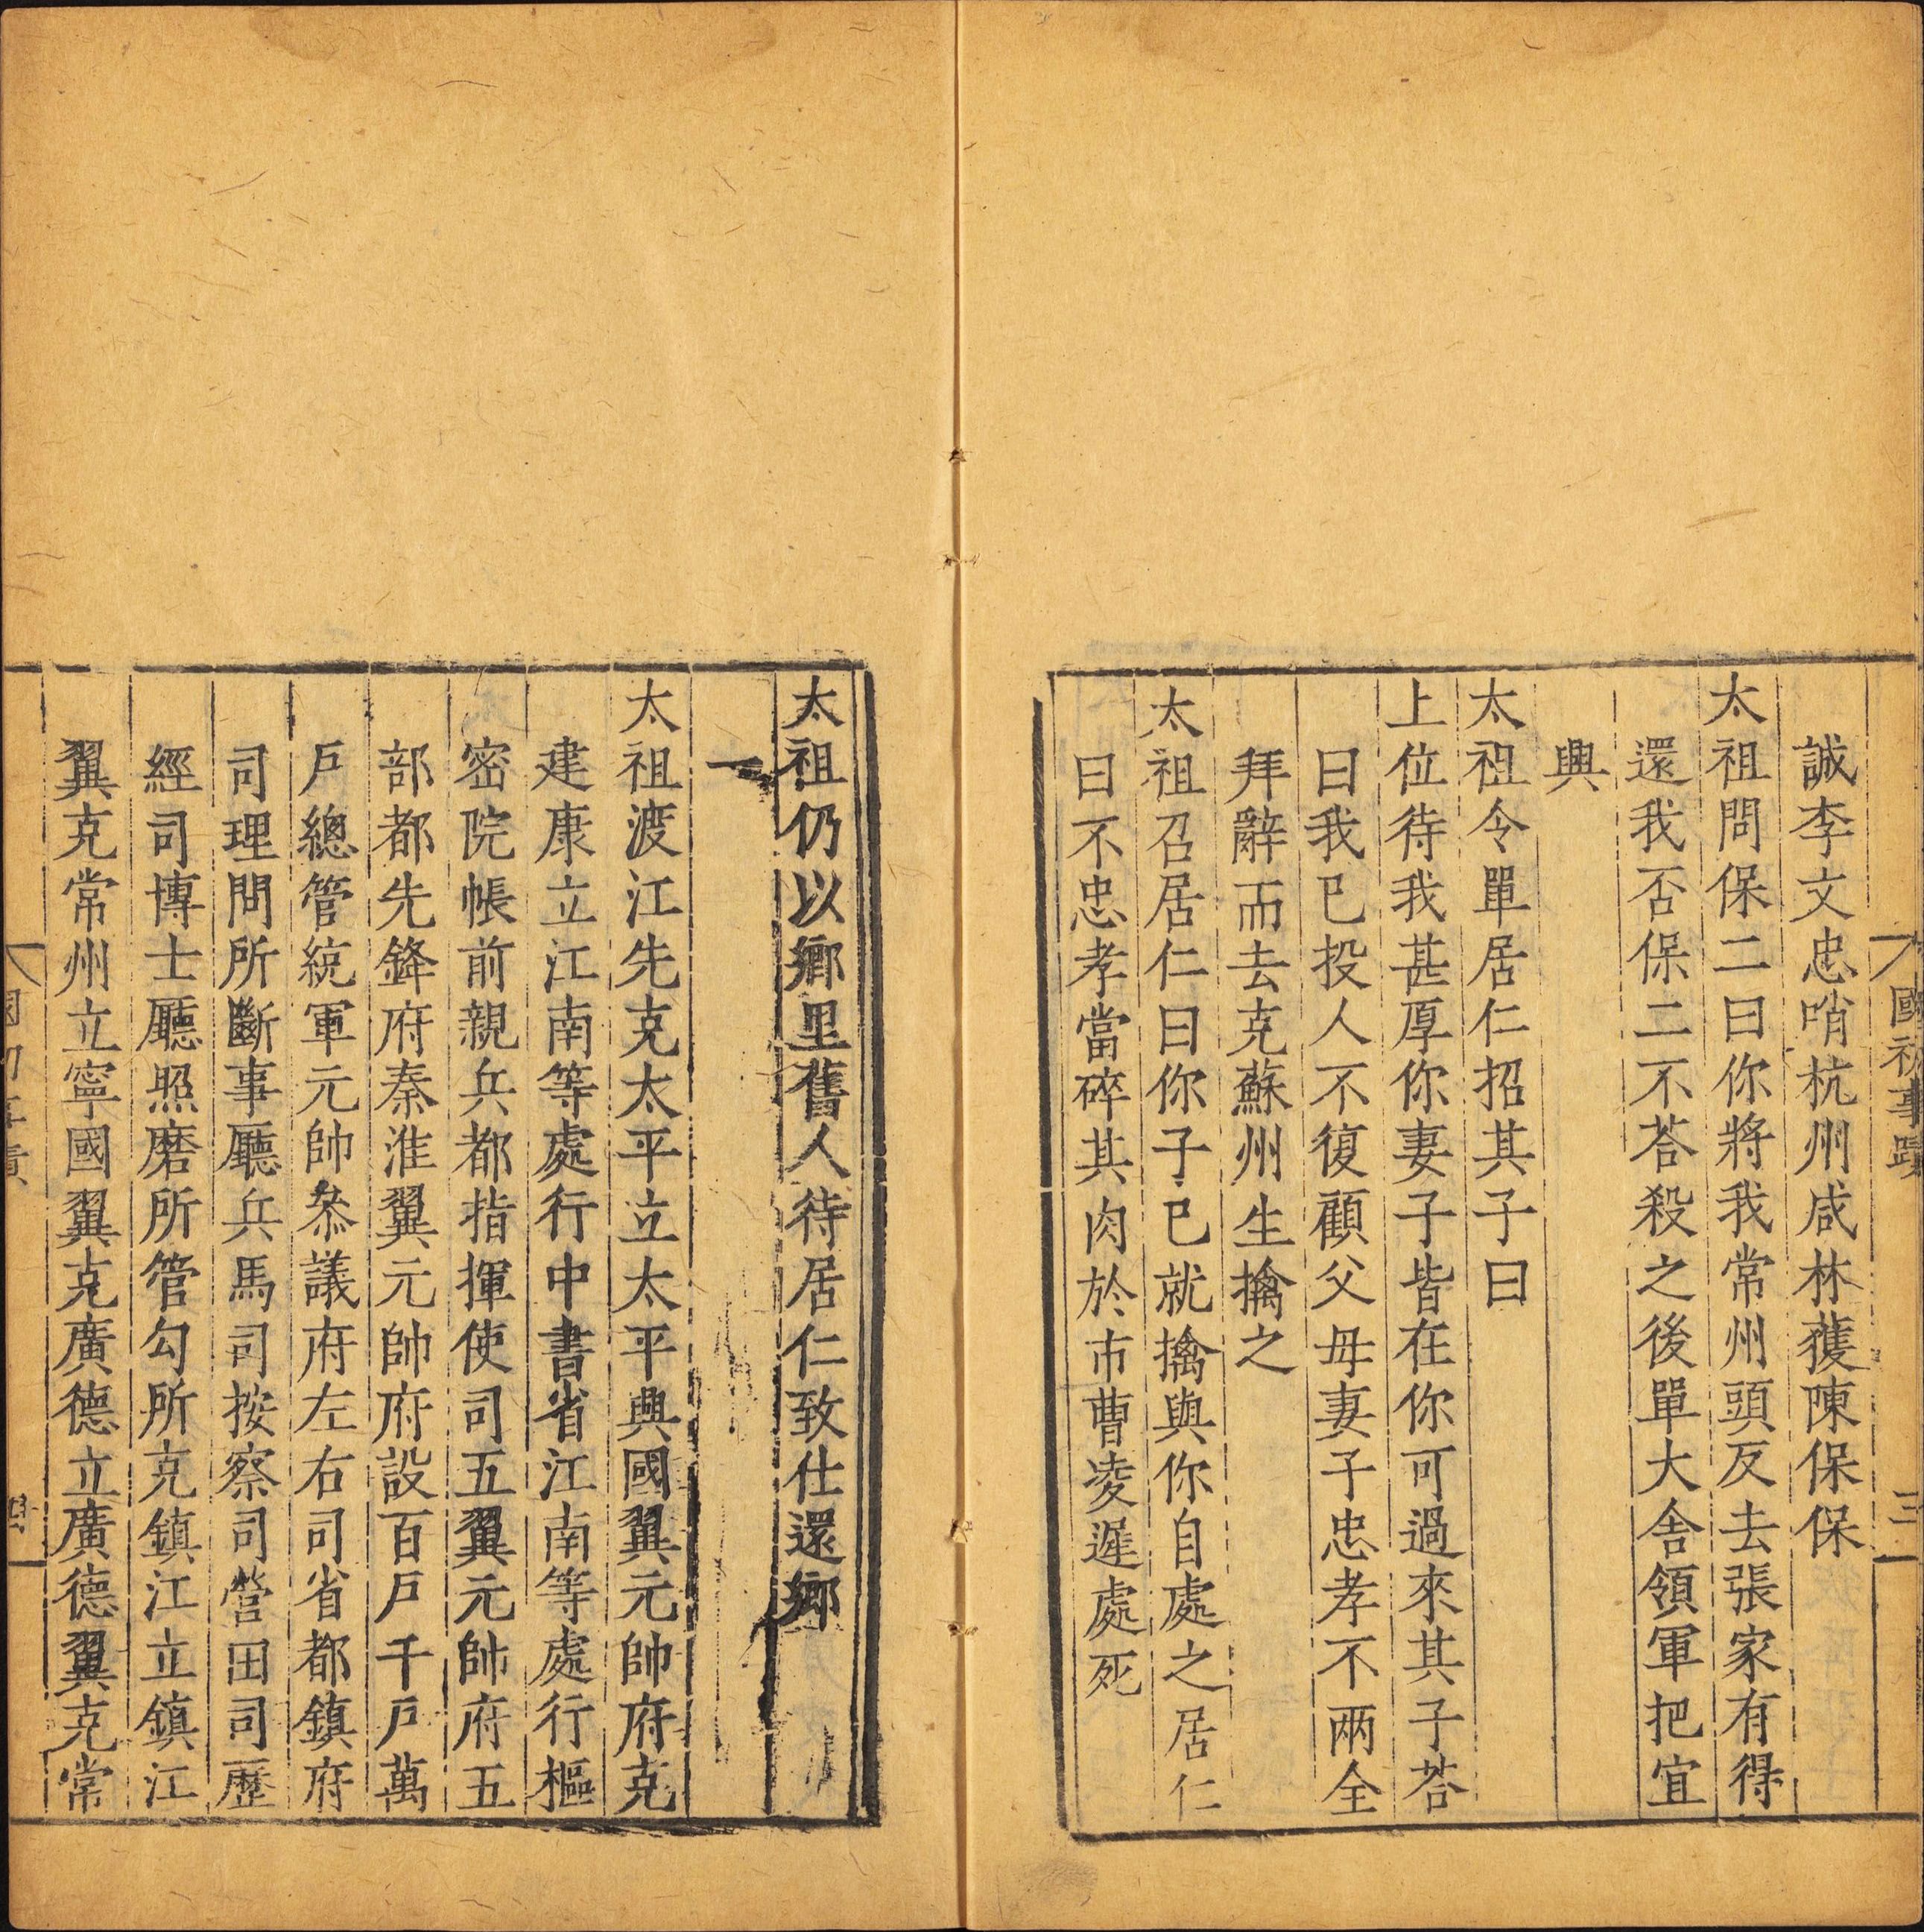 國初事蹟
三
誠李文忠哨杭州咸林獲陳保保
太祖問保二曰你將我常州頭反去張家有得
還我否保二不荅殺之後單大舎領軍把宜
興
太祖令單居仁招其子曰
上位待我甚厚你妻子皆在你可過來其子荅
曰我已投人不復顧父母妻子忠孝不兩全
拜辭而去克蘇州生擒之
太祖召居仁曰你子已就擒與你自處之居仁
曰不忠孝當碎其肉於市曹凌遲處死
太祖仍以鄉里舊人待居仁致仕還鄉
一
太祖渡江先克太平立太平興國翼元帥府克
建康立江南等處行中書省江南等處行樞
密院帳前親兵都指揮使司五翼元帥府五
部都先鋒府秦淮翼元帥府設百戶千戶萬
戶總管統軍元帥叅議府左右司省都鎮府
司理問所斷事廳兵馬司按察司營田司歷
經司博士廳照磨所管勾所克鎮江立鎮江
翼克常州立寧國翼克廣德立廣德翼克常